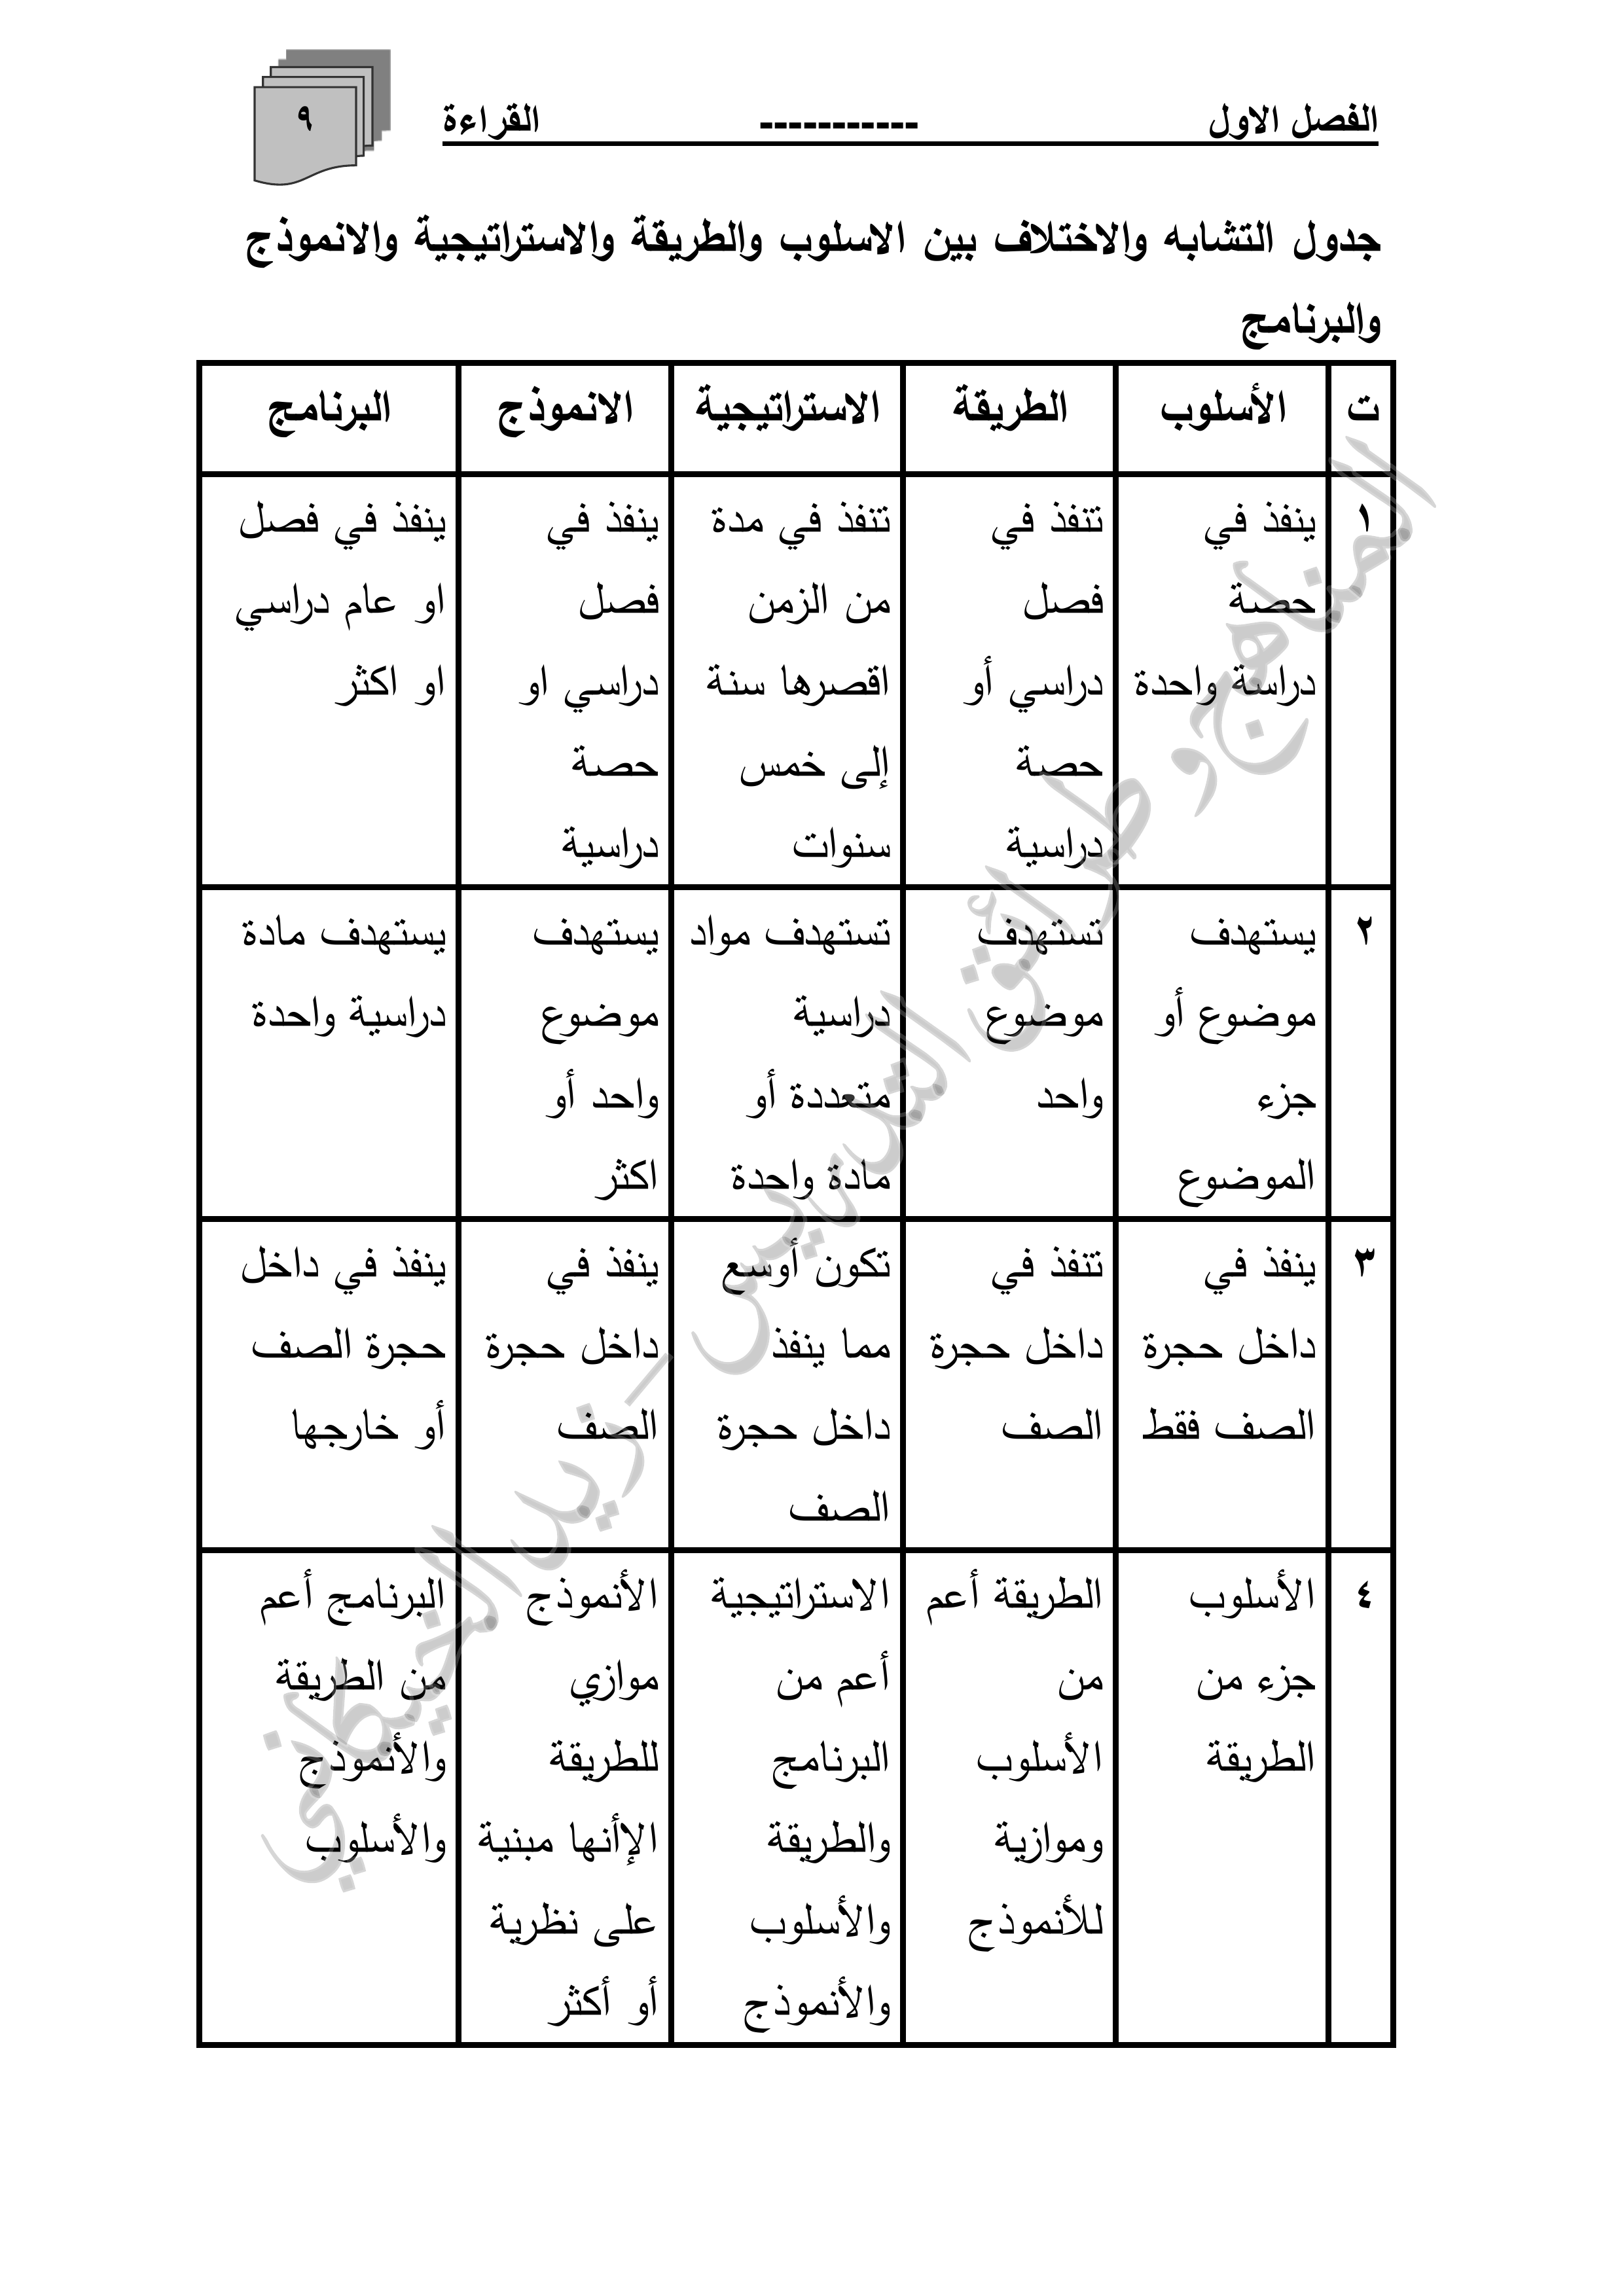 الفصل الاول ----------- القراءة
٩
جدول التشابه والاختلاف بين الاسلوب والطريقة والاستراتيجية والانموذج
والبرنامج
ت
الأسلوب
الطريقة
الاستراتيجية
الانموذج
البرنامج
١
ينفذ في
حصة
دراسة واحدة
تنفذ في
فصل
دراسي أو
حصة
دراسية
تنفذ في مدة
من الزمن
اقصرها سنة
إلى خمس
سنوات
ينفذ في
فصل
دراسي او
حصة
دراسية
ينفذ في فصل
او عام دراسي
او اكثر
٢
يستهدف
موضوع أو
جزء
الموضوع
تستهدف
موضوع
واحد
تستهدف مواد
دراسية
متعددة أو
مادة واحدة
يستهدف
موضوع
واحد أو
اكثر
يستهدف مادة
دراسية واحدة
٣
ينفذ في
داخل حجرة
الصف فقط
تنفذ في
داخل حجرة
الصف
تكون أوسع
مما ينفذ
داخل حجرة
الصف
ينفذ في
داخل حجرة
الصف
ينفذ في داخل
حجرة الصف
أو خارجها
٤
الأسلوب
جزء من
الطريقة
الطريقة أعم
من
الأسلوب
وموازية
للأنموذج
الاستراتيجية
أعم من
البرنامج
والطريقة
والأسلوب
والأنموذج
الأنموذج
موازي
للطريقة
الإأنها مبنية
على نظرية
أو أكثر
البرنامج أعم
من الطريقة
والأنموذج
والأسلوب
المناهج و طرائق التدريس - زيد الخيكاني